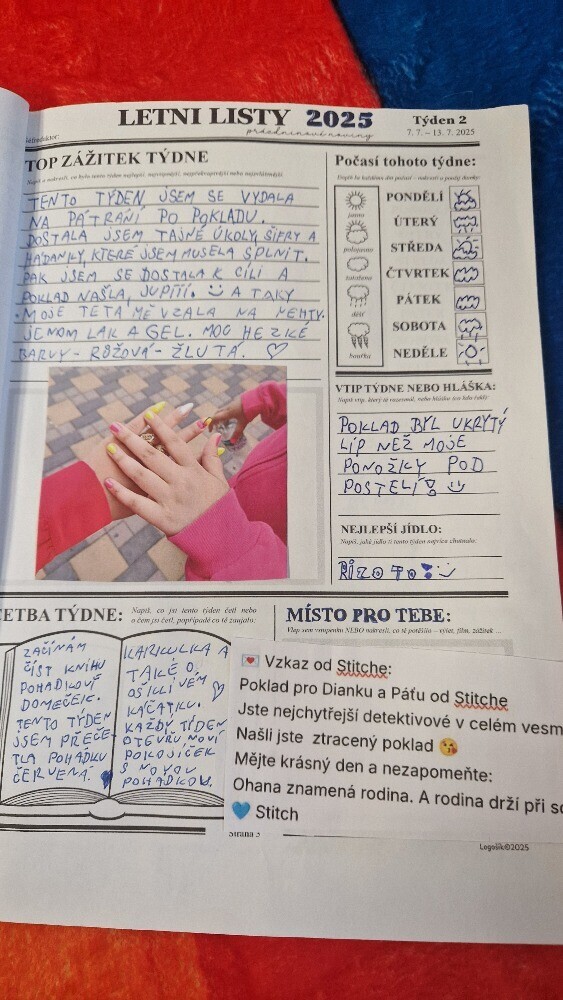 LETNI LISTY 2025
prázdninové noviny
Týden 2
7. 7. – 13. 7. 2025
TOP ZÁŽITEK TÝDNE
TENTO TÝDEN JSEM SE VYDALA
NA PÁTRANÍ PO POKLADU.
DOSTALA JSEM TAJNÉ ÚKOLY, ŠIFRY A
HÁDANKY, KTERÉ JSEM MUSELA SPLNIT.
PAK JSEM SE DOSTALA K CÍLI A
POKLAD NAŠLA, JUPÍÍÍ. A TAKY
MOJE TETA MĚ VZALA NA NEHTY.
JENOM LAK A GEL. MOC HEZKÉ
BARVY - RŮŽOVÁ - ŽLUTÁ.
Počasí tohoto týdne:
jasno
polojasno
zataženo
déšť
bouřka
PONDĚLÍ
ÚTERÝ
STŘEDA
ČTVRTEK
PÁTEK
SOBOTA
NEDĚLE
VTIP TÝDNE NEBO HLÁŠKA:
Napiš vtip, který tě rozesmál, nebo hlášku
POKLAD BYL UKRYTÝ
LÍP NEŽ MOJE
PONOŽKY POD
POSTELÍ!
NEJLEPŠÍ JÍDLO:
Napiš, jaké jídlo ti tento týden nejvíce chutnalo:
RIZOTO!
ČETBA TÝDNE:
Napiš, co jsi tento týden četl nebo
o čem jsi četl, popřípadě co tě zaujalo:
ZAČÍNÁM
ČÍST KNIHU
POHÁDKOVÝ
DOMEČEK.
TENTO TÝDEN
JSEM PŘEČE-
TLA POHÁDKU
ČERVENÁ
KARKULKA A
TAKÉ O
OŠKLIVÉM
KÁČÁTKU.
KAŽDÝ TÝDEN
OTEVŘU NOVÝ
POKOJÍČEK
S NOVOU
POHÁDKOU.
MÍSTO PRO TEBE:
Vlep sem vstupenku NEBO nakresli, co tě potěšilo – výlet, film, zážitek ...
Vzkaz od Stitche:
Poklad pro Dianku a Páťu od Stitche
Jste nejchytřejší detektivové v celém vesm
Našli jste ztracený poklad 😘
Mějte krásný den a nezapomeňte:
Ohana znamená rodina. A rodina drží při so
💙 Stitch
Strana 5
Logošík©2025